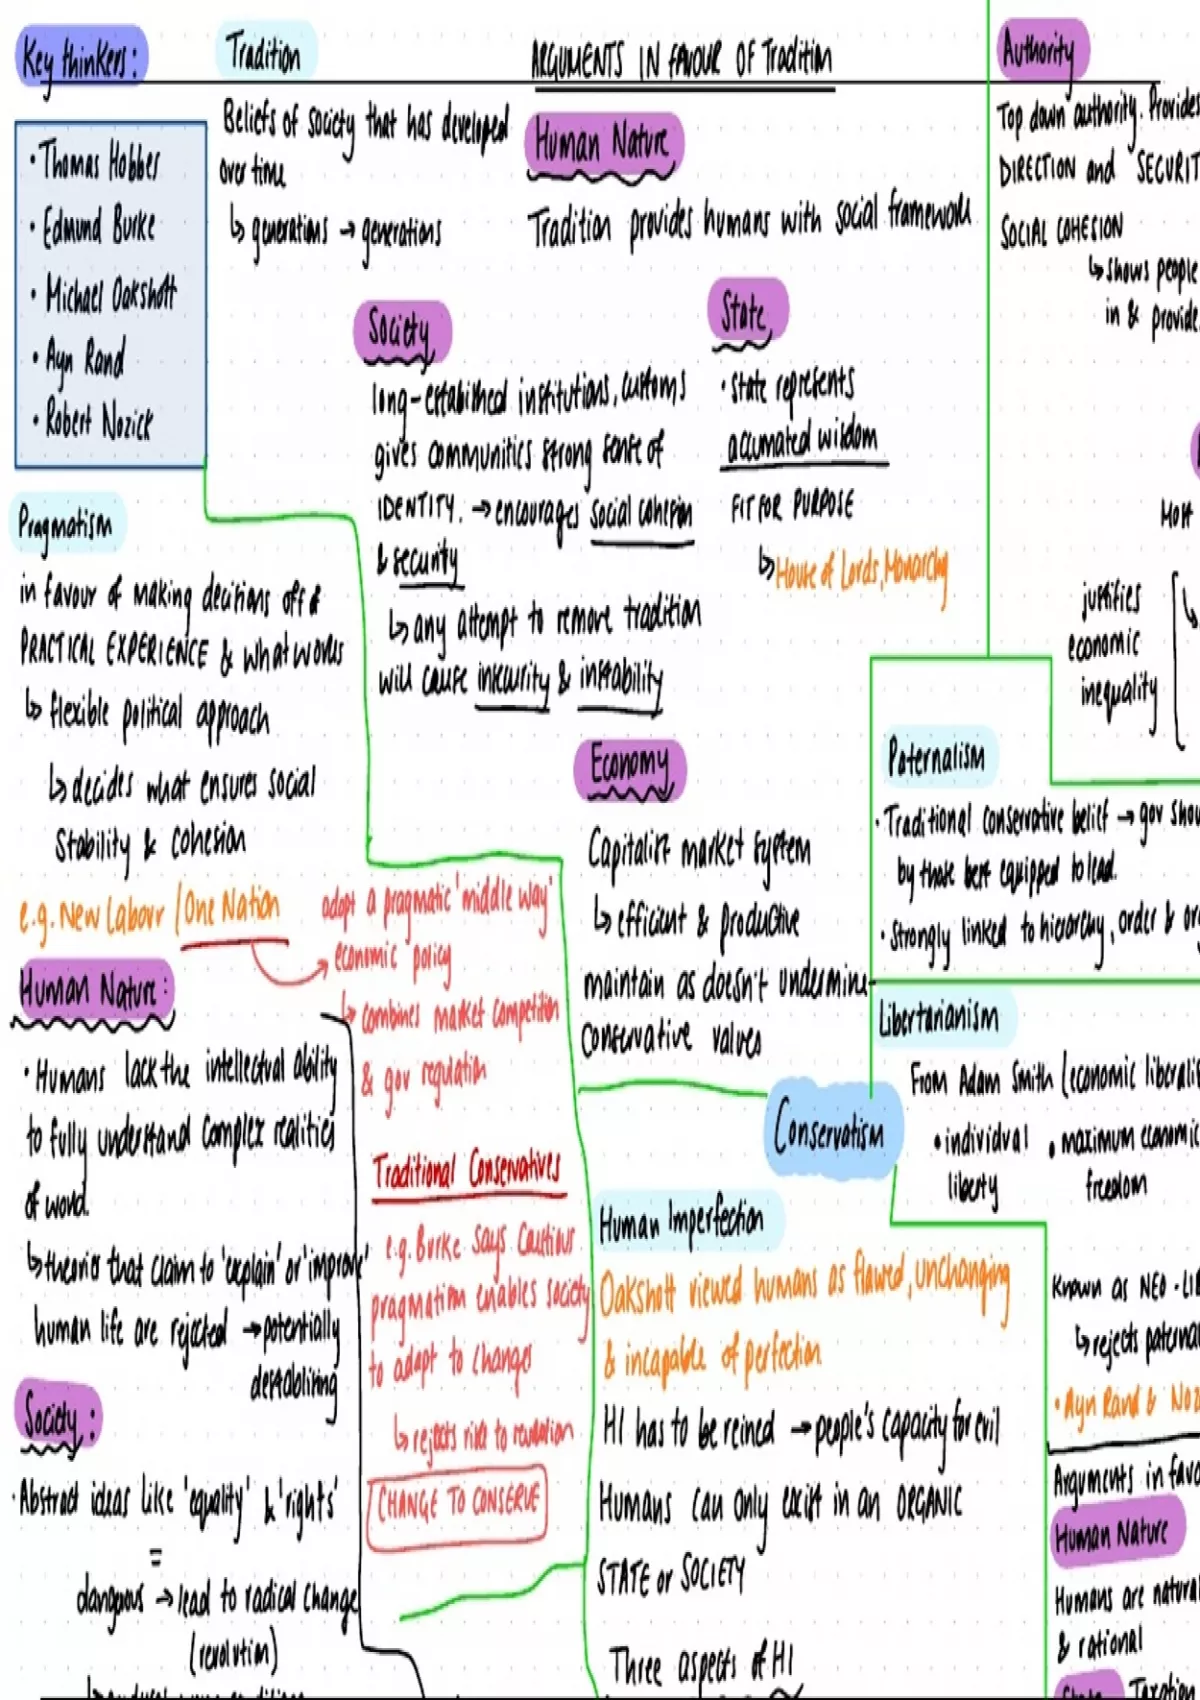 Key thinkers:
• Thomas Hobbes
• Edmund Burke
• Michael Oakshott
• Ayn Rand
• Robert Nozick
Tradition
Beliefs of society that has developed
over time
↳ generations → generations
ARGUMENTS IN FAVOUR OF Tradition
Human Nature
Tradition provides humans with social framework
Society
long-established institutions, customs
gives communities strong sense of
IDENTITY. → encourages social cohesion
& security
↳ any attempt to remove tradition
will cause insecurity & instability
State
• State represents
accumated wisdom
FIT FOR PURPOSE
↳ House of Lords, Monarchy
Economy
Capitalist market system
↳ efficient & productive
maintain as doesn't undermine
Conservative values
Authority
Top down authority. Provides
DIRECTION and SECURIT
SOCIAL COHESION
↳ shows people
in & provide
Most
justifies
economic
inequality
Pragmatism
in favour of making decisions off of
PRACTICAL EXPERIENCE & what works
↳ flexible political approach
↳ decides what ensures social
Stability & cohesion
e.g. New Labour / One Nation
adopt a pragmatic 'middle way'
economic policy
↳ combines market competition
& gov regulation
Human Nature:
• Humans lack the intellectual ability
to fully understand complex realities
of word.
↳ theories that claim to 'explain' or 'improve'
human life are rejected → potentially
destabilising
Society:
• Abstract ideas like 'equality' & 'rights'
=
dangerous → lead to radical change
(revolution)
Traditional Conservatives
e.g. Burke says cautious
pragmatism enables society
to adapt to changes
↳ rejects risk to revolution
CHANGE TO CONSERVE
Conservatism
Human Imperfection
Oakshott viewed humans as flawed, unchanging
& incapable of perfection
HI has to be reined → people's capacity for evil
Humans can only exist in an ORGANIC
STATE or SOCIETY
Three aspects of HI
Paternalism
• Traditional conservative belief → gov shou
by those best equipped to lead.
• Strongly linked to hierarchy, order & org
Libertarianism
From Adam Smith (economic liberalis
• individual
liberty
• maximum economic
freedom
Known as NEO-LIB
↳ rejects paterna
• Ayn Rand & Noz
Arguments in favo
Human Nature
Humans are natura
& rational
State
Taxation